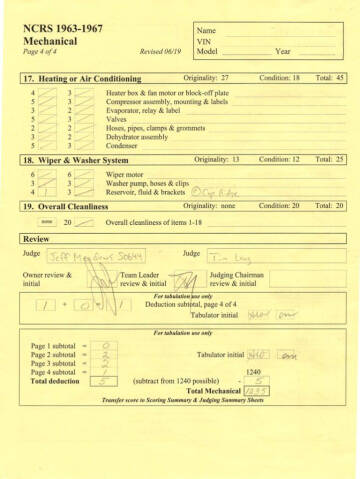 NCRS 1963-1967
Mechanical
Page 4 of 4 Revised 06/19
Name
VIN
Model Year
17. Heating or Air Conditioning Originality: 27 Condition: 18 Total: 45
4 3 Heater box & fan motor or block-off plate
5 3 Compressor assembly, mounting & labels
3 2 Evaporator, relay & label
5 3 Valves
2 2 Hoses, pipes, clamps & grommets
3 2 Dehydrator assembly
5 3 Condenser
18. Wiper & Washer System Originality: 13 Condition: 12 Total: 25
6 6 Wiper motor
3 3 Washer pump, hoses & clips
4 1 3 Reservoir, fluid & brackets
19. Overall Cleanliness Originality: none Condition: 20 Total: 20
none 20 Overall cleanliness of items 1-18
Review
Judge Jeff Judge Tim
Owner review & initial Team Leader review & initial Judging Chairman review & initial
For tabulation use only
1 + 0 = 1 Deduction subtotal, page 4 of 4
Tabulator initial
For tabulation use only
Page 1 subtotal = 0
Page 2 subtotal = 2 Tabulator initial
Page 3 subtotal = 2
Page 4 subtotal = 1 1240
Total deduction = 5 (subtract from 1240 possible) - 5
Total Mechanical 1235
Transfer score to Scoring Summary & Judging Summary Sheets